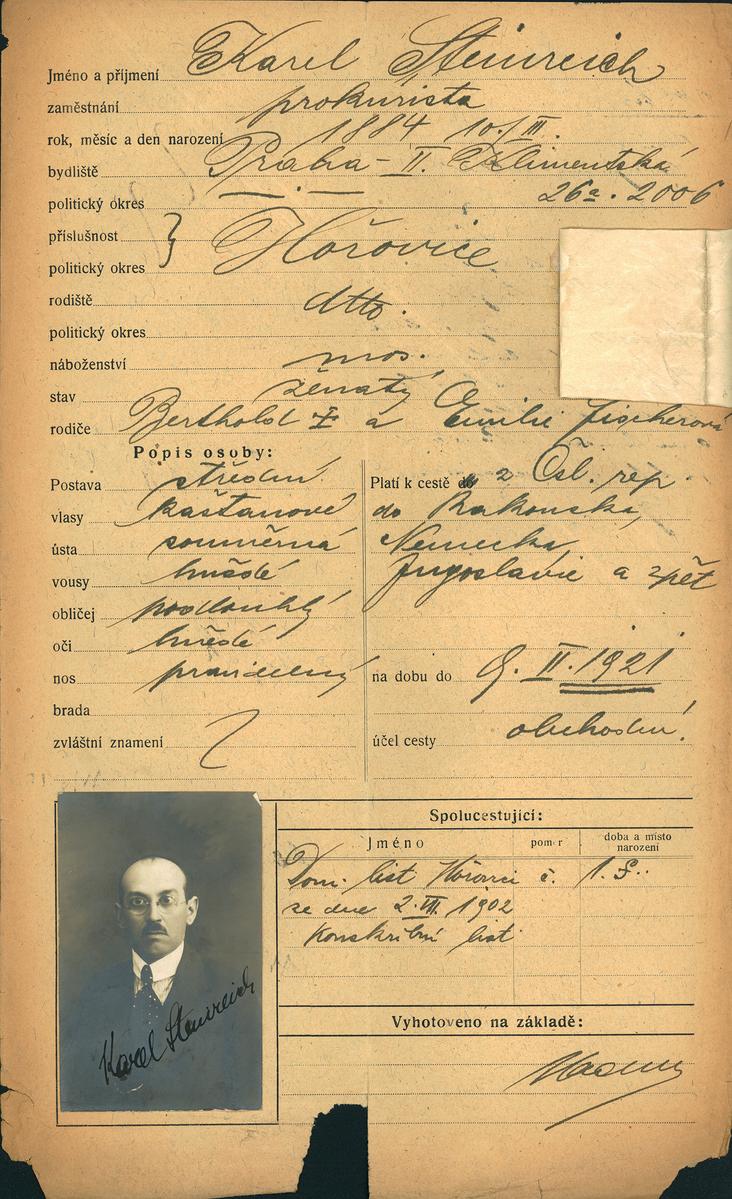 Jméno a příjmení Karel Steinreich
zaměstnání prokurista
rok, měsíc a den narození 1884 10./III.
bydliště Praha – II. Klimentská
politický okres 26a. 2006
příslušnost Hořovice
politický okres
rodiště dtto.
politický okres
náboženství mos.
stav ženatý
rodiče Berthold a Emilie Fischerová
Popis osoby:
Postava střední
vlasy kaštanové
ústa souměrná
vousy hnědé
obličej podlouhlý
oči hnědé
nos pravidelný
brada
zvláštní znamení
Platí k cestě do z Čsl. rep.
do Rakouska,
Německa,
Jugoslavie a zpět
na dobu do 9. II. 1921
účel cesty obchodní.
Karel Steinreich
Spolucestující:
Jméno poměr doba a místo
narození
Dom. list Hořovici č. 1.
ze dne 2. VII. 1902
Konskribní list
Vyhotoveno na základě: